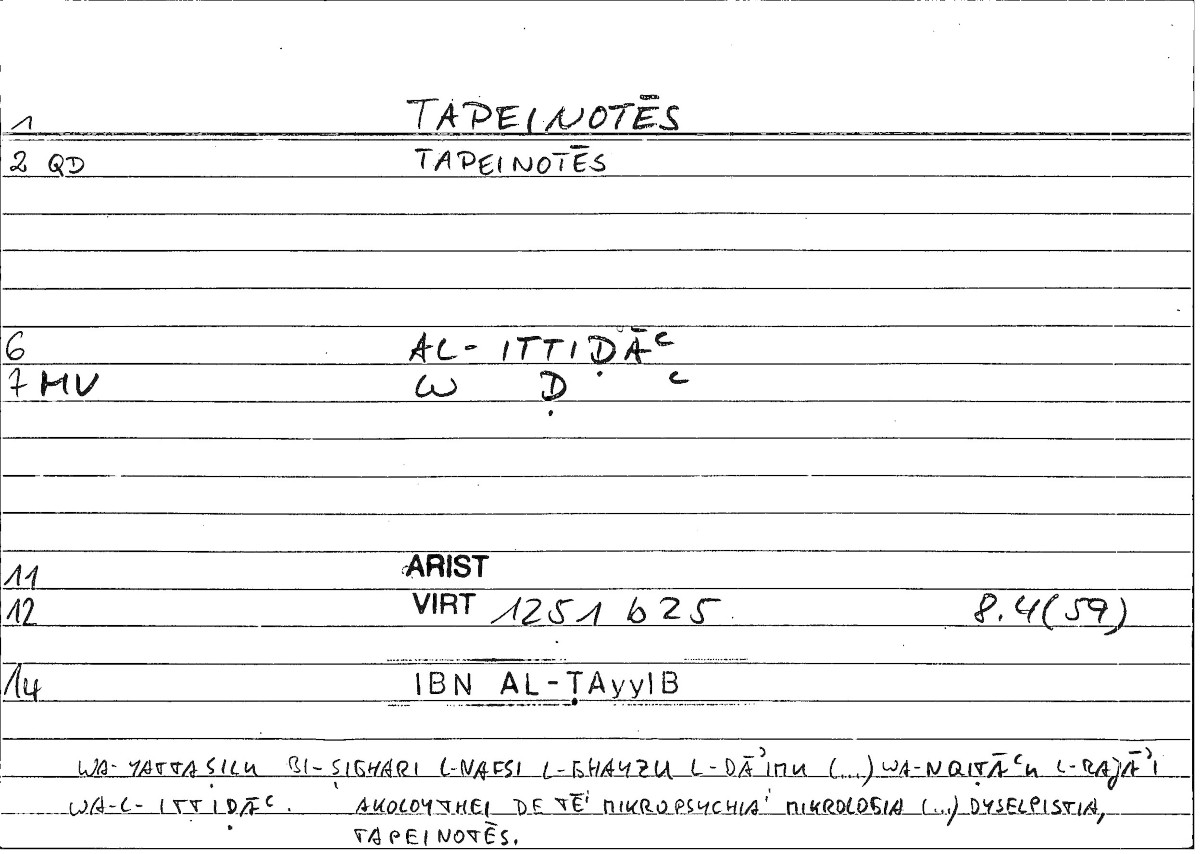 1 TAPEINOTĒS
2 QD TAPEINOTĒS
6 AL- ITTIḌĀʿ
7 MV W Ḍ ʿ
11 ARIST
12 VIRT 1251 b 25 8.4(59)
14 IBN AL-ṬAyyIB
WA-YATTAṢILU BI-ṢIGHARI L-NAFSI L-GHAYẒU L-DĀʾIMU (...) WA-NQIṬĀʿU L-RAJĀʾI
WA-L-ITTIḌĀʿ. AKOLOYTHEI DE TĒʾ MIKROPSYCHIAʾ MIKROLOGIA (...) DYSELPISTIA,
TAPEINOTĒS.